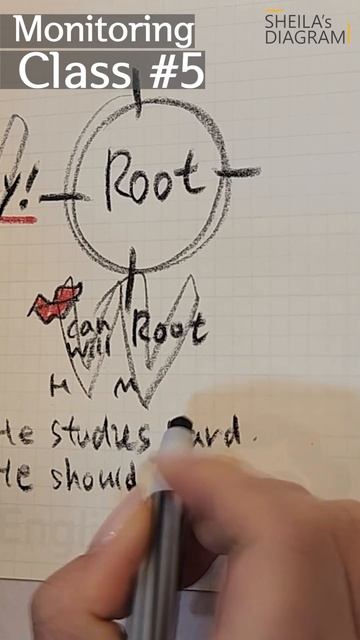 Monitoring
Class #5
SHEILA's
DIAGRAM
y!
Root
can
will
Root
H M
He studies hard.
He should